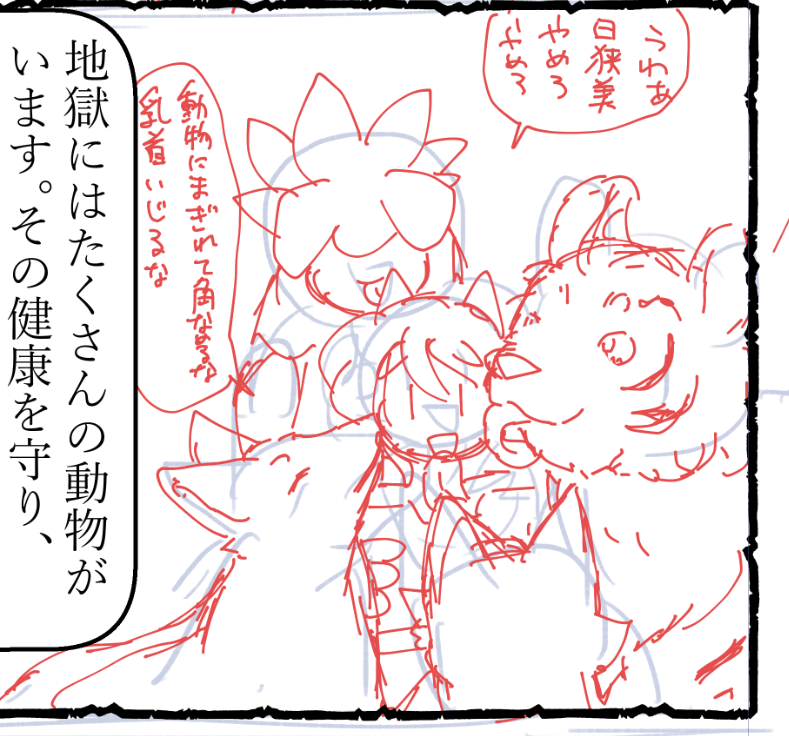 うわぁ
日狭美
やめろ
やめろ
動物にまぎれて角なめるな
乳首いじるな
地獄にはたくさんの動物が
います。その健康を守り、